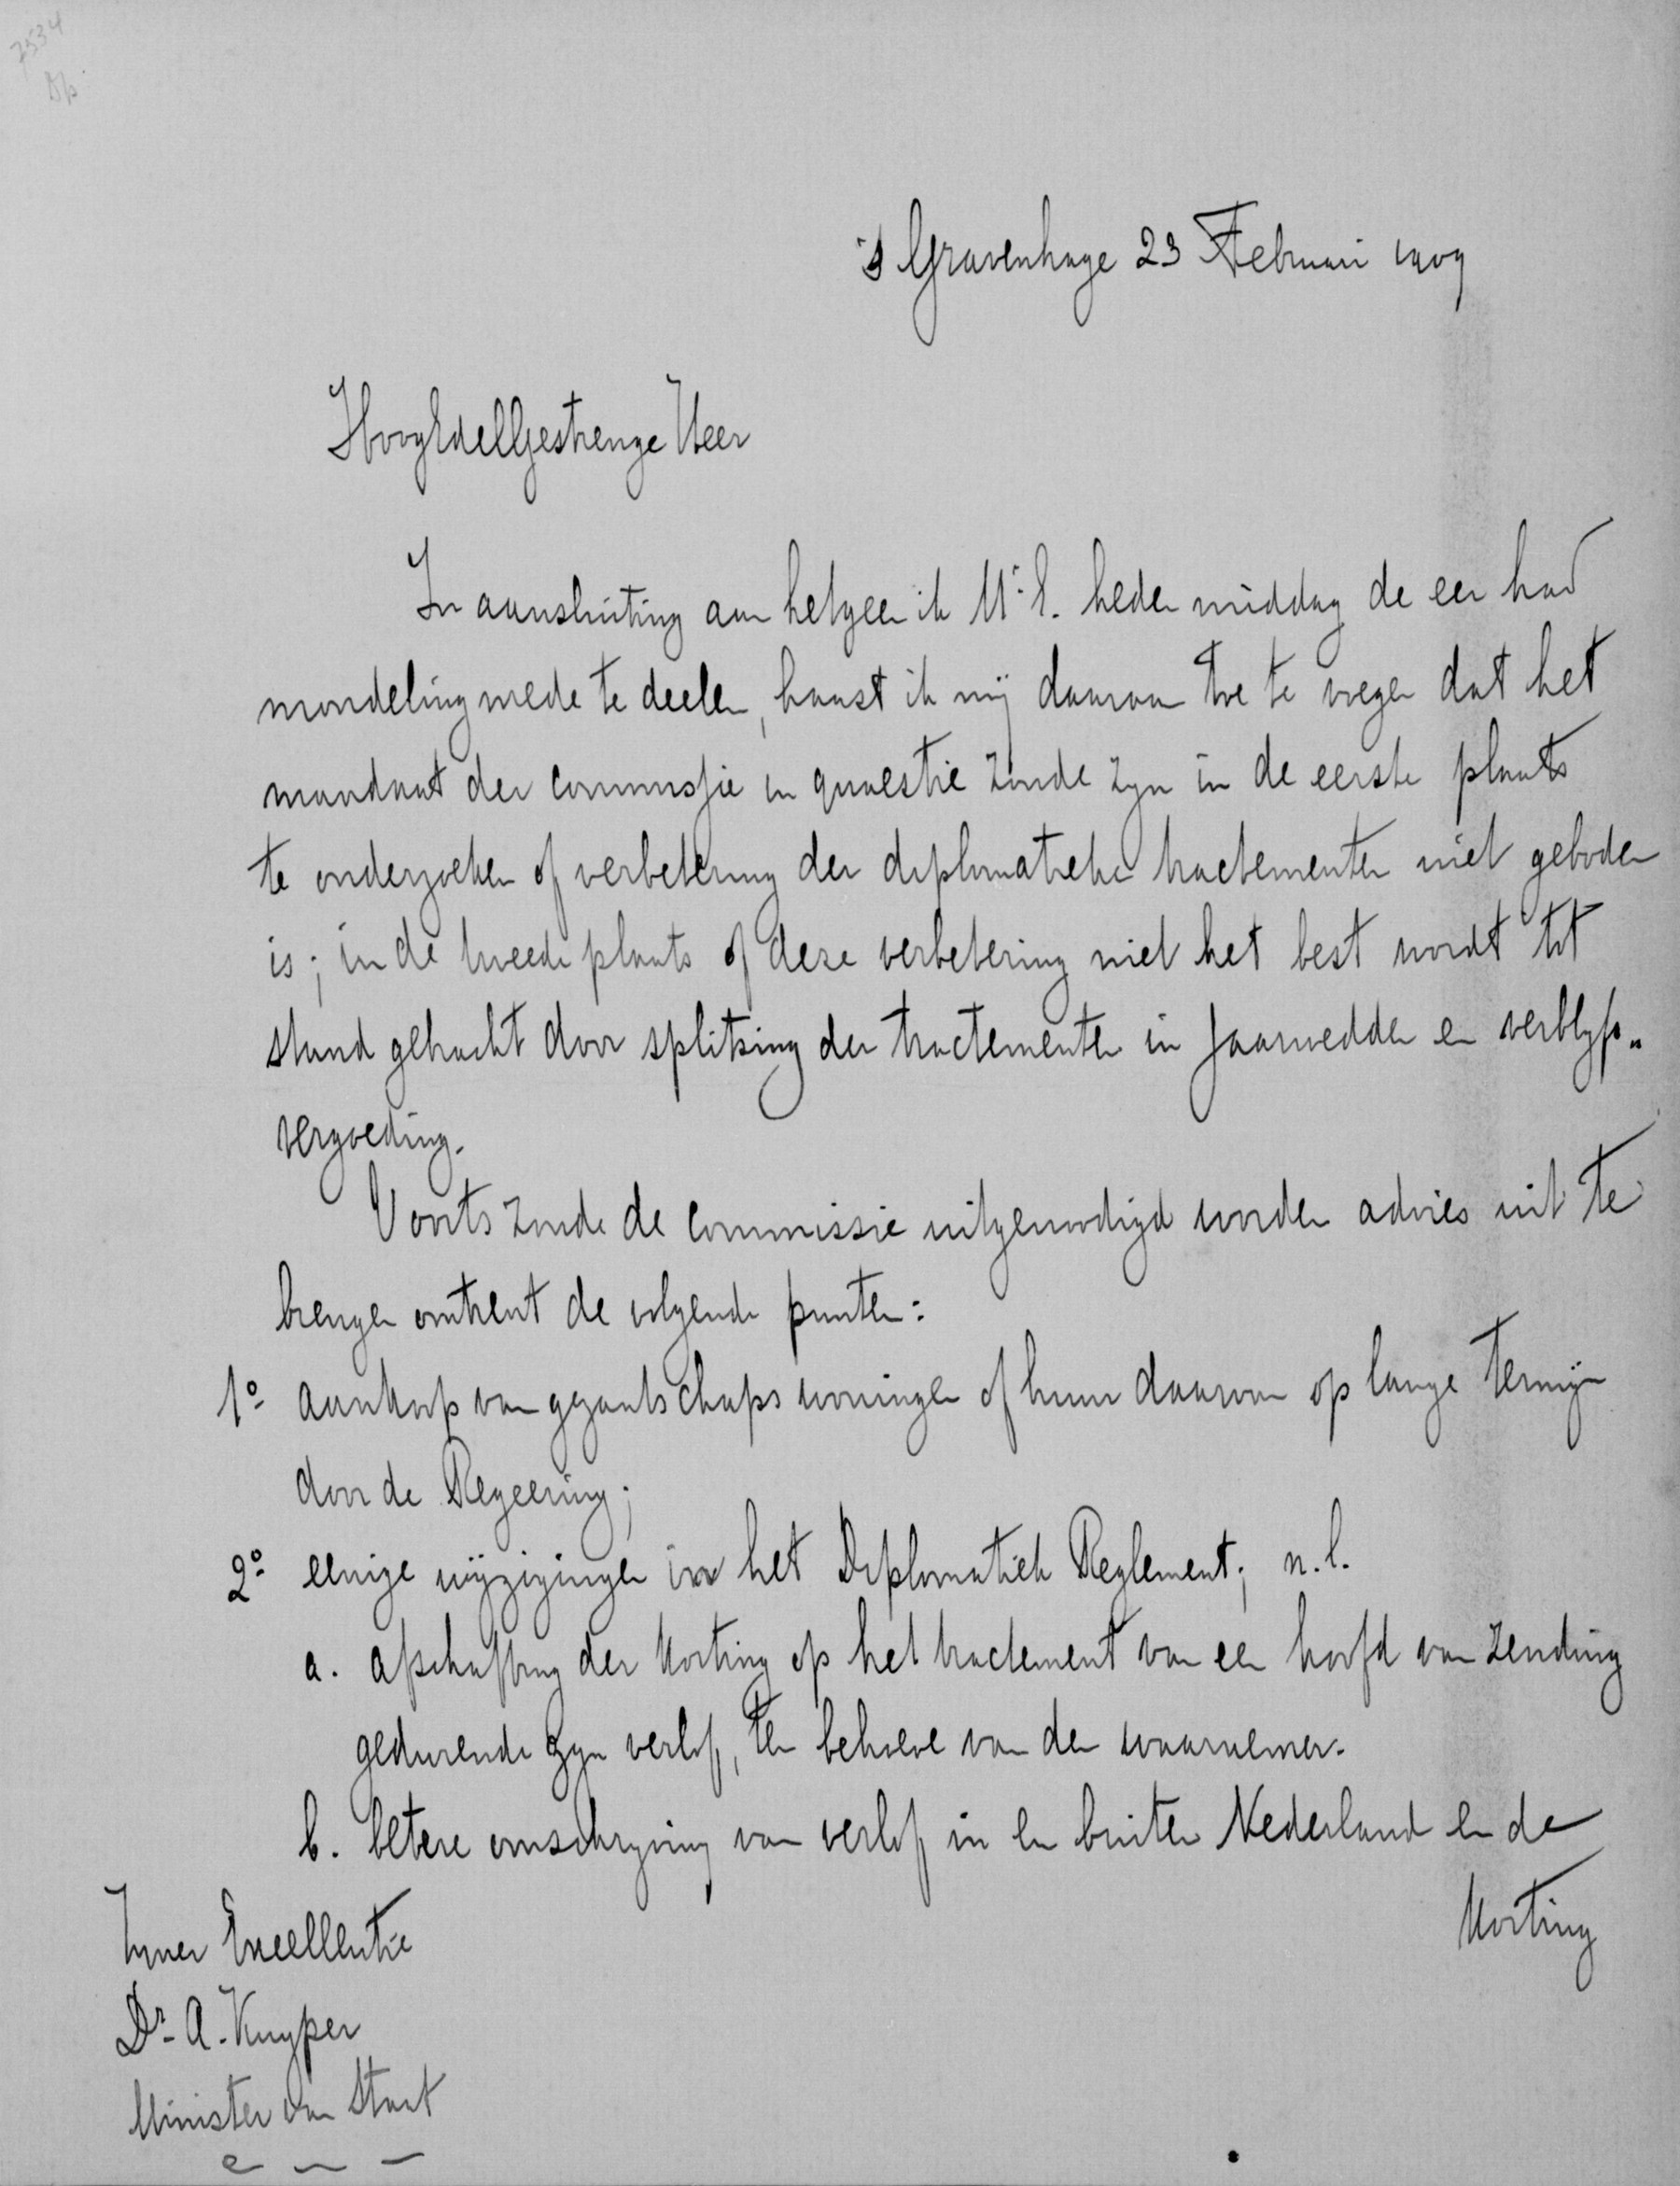 7534
's Gravenhage 23 Februari 1909
HoogEdelGestrenge Heer
In aansluiting aan hetgeen ik U.E. heden middag de eer had
mondeling mede te deelen, haast ik mij daaraan toe te voegen dat het
mandaat der commissie in quaestie zoude zyn in de eerste plaats
te onderzoeken of verbetering der diplomatieke tractementen niet geboden
is; in de tweede plaats of deze verbetering niet het best wordt tot
stand gebracht door splitsing der tractementen in Jaarwedden en verblyfs„
vergoeding.
Voorts zoude de commissie uitgenoodigd worden advies uit te
brengen omtrent de volgende punten:
1º aankoop van gezantschapswoningen of huur daarvan op lange termijn
door de Regeering;
2º eenige wijzigingen in het Diplomatiek Reglement; n.l.
a. afschaffing der korting op het tractement van een hoofd van zending
gedurende zyn verlof, ten behoeve van den waarnemer.
b. betere omschryving van verlof in en buiten Nederland en de
korting
Zyner Excellentie
Dr. A. Kuyper
Minister van Staat
e — —